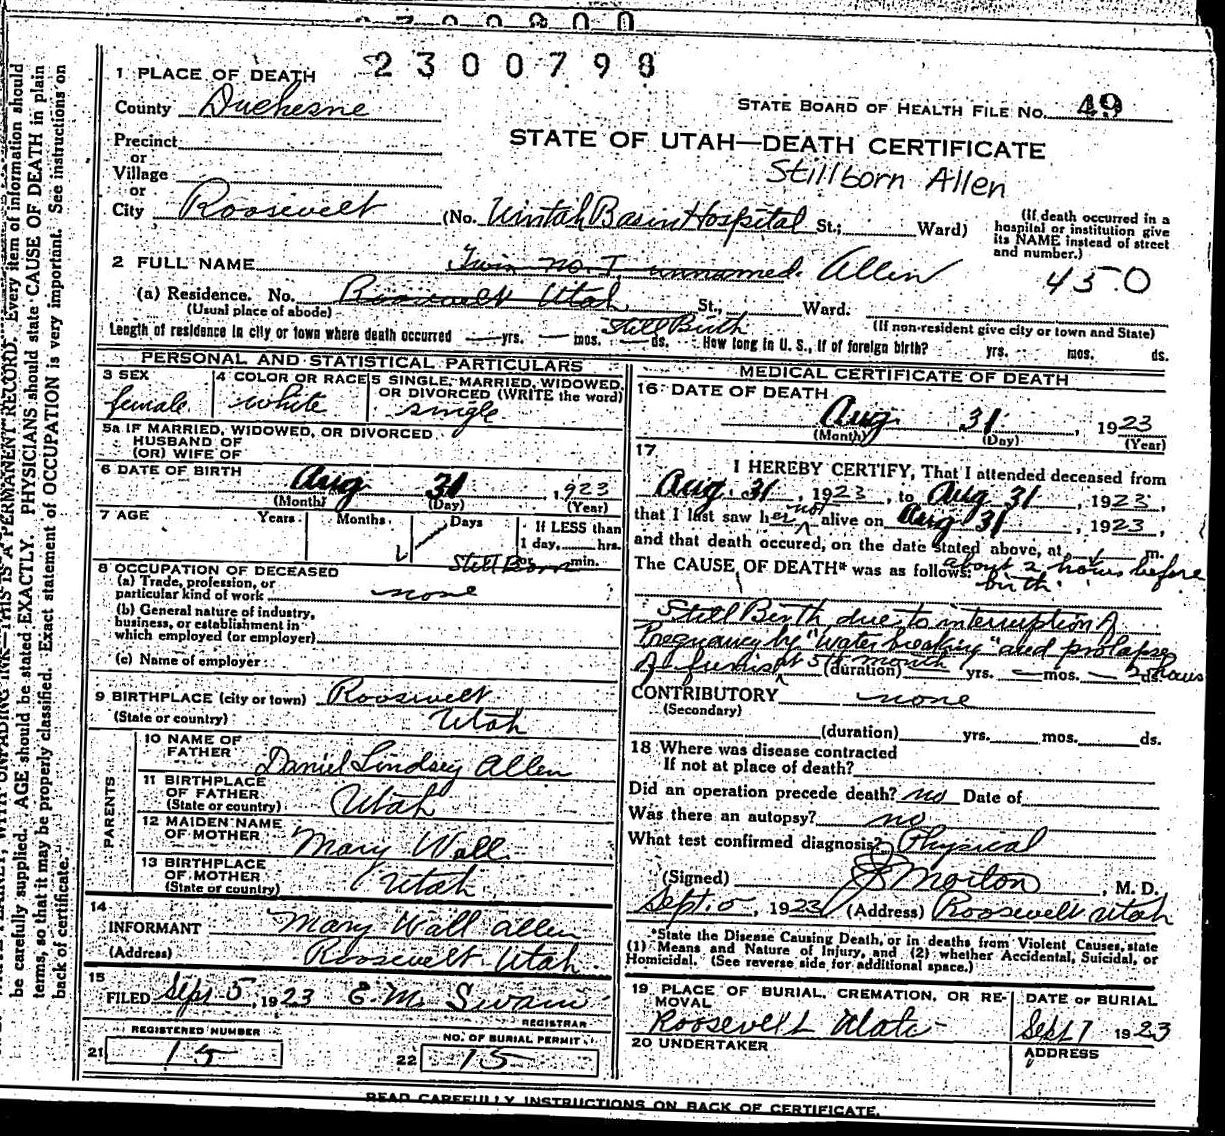 2300798
1 PLACE OF DEATH
County Duchesne
STATE BOARD OF HEALTH FILE No. 49
STATE OF UTAH—DEATH CERTIFICATE
Stillborn Allen
Precinct
or
Village
or
City Roosevelt (No. Uintah Basin Hospital St.; Ward)
(If death occurred in a
hospital or institution give
its NAME instead of street
and number.)
450
2 FULL NAME Twin no. I unnamed. Allen
(a) Residence. No. Roosevelt Utah St., Ward.
(Usual place of abode)
(If non-resident give city or town and State)
Still Birth
Length of residence in city or town where death occurred yrs. mos. ds. How long in U. S., if of foreign birth? yrs. mos. ds.
PERSONAL AND STATISTICAL PARTICULARS
3 SEX
female
4 COLOR OR RACE
white
5 SINGLE, MARRIED, WIDOWED,
OR DIVORCED (WRITE the word)
single
5a IF MARRIED, WIDOWED, OR DIVORCED
HUSBAND OF
(OR) WIFE OF
6 DATE OF BIRTH
Aug 31, 1923
(Month) (Day) (Year)
7 AGE Years Months Days If LESS than
1 day, hrs.
or min.
Still Born
8 OCCUPATION OF DECEASED
(a) Trade, profession, or
particular kind of work none
(b) General nature of industry,
business, or establishment in
which employed (or employer)
(c) Name of employer
9 BIRTHPLACE (city or town) Roosevelt
(State or country) Utah
PARENTS
10 NAME OF
FATHER Daniel Lindsey Allen
11 BIRTHPLACE
OF FATHER
(State or country) Utah
12 MAIDEN NAME
OF MOTHER Mary Wall
13 BIRTHPLACE
OF MOTHER
(State or country) Utah
14
INFORMANT Mary Wall Allen
(Address) Roosevelt Utah
15
FILED Sept 5, 1923 E.M. Swain
REGISTRAR
REGISTERED NUMBER
21 15
NO. OF BURIAL PERMIT
22 15
MEDICAL CERTIFICATE OF DEATH
16 DATE OF DEATH
Aug 31, 1923
(Month) (Day) (Year)
17
I HEREBY CERTIFY, That I attended deceased from
Aug. 31, 1923, to Aug 31, 1923,
that I last saw her not alive on Aug 31, 1923,
and that death occured, on the date stated above, at m.
The CAUSE OF DEATH* was as follows: about 2 hours before
birth
Still Birth due to interruption of
Pregnancy by "water breaking" and prolapse
(duration) yrs. mos. ds.
CONTRIBUTORY none
(Secondary)
(duration) yrs. mos. ds.
18 Where was disease contracted
If not at place of death?
Did an operation precede death? no Date of
Was there an autopsy? no
What test confirmed diagnosis? Physical
(Signed) Morton, M. D.
Sept. 5, 1923 (Address) Roosevelt Utah
*State the Disease Causing Death, or in deaths from Violent Causes, state
(1) Means and Nature of Injury, and (2) whether Accidental, Suicidal, or
Homicidal. (See reverse side for additional space.)
19 PLACE OF BURIAL, CREMATION, OR RE-
MOVAL
Roosevelt Utah
DATE OF BURIAL
Sept 1 1923
20 UNDERTAKER
ADDRESS
READ CAREFULLY INSTRUCTIONS ON BACK OF CERTIFICATE.
THIS IS A PERMANENT RECORD. Every item of information should
be carefully supplied. AGE should be stated EXACTLY. PHYSICIANS should state CAUSE OF DEATH in plain
terms, so that it may be properly classified. Exact statement of OCCUPATION is very important. See instructions on
back of certificate.